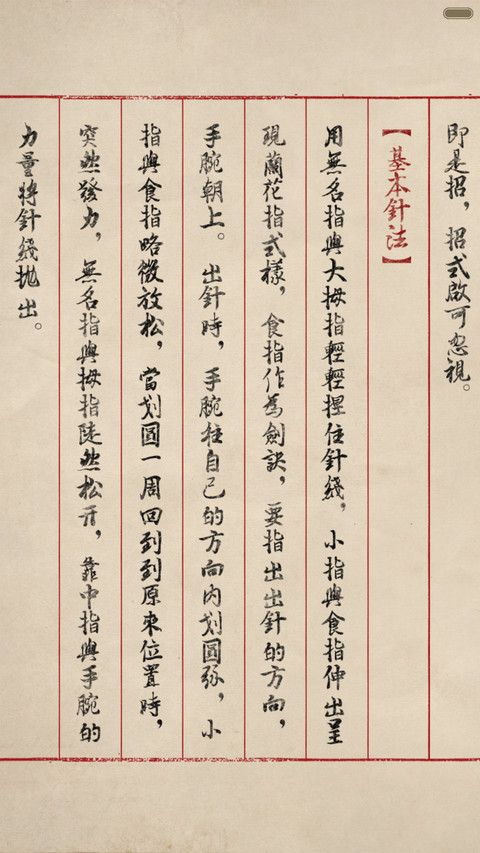 即是招，招式啟可忽視。
【基本針法】
用無名指與大拇指輕輕捏住針綫，小指與食指伸出呈
現蘭花指式樣，食指作為劍訣，要指出出針的方向，
手腕朝上。出針時，手腕往自己的方向内划圓弧，小
指與食指略微放松，當划圓一周回到到原來位置時，
突然發力，無名指與拇指陡然松开，靠中指與手腕的
力量將針綫拋出。